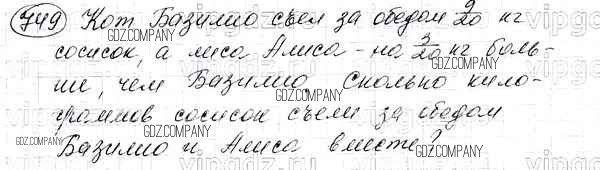 749 Кот Базилио съел за обедом 9/20 кг
сосисок, а лиса Алиса - на 3/20 кг боль-
ше, чем Базилио. Сколько кило-
граммов сосисок съели за обедом
Базилио и Алиса вместе?
GDZ.COMPANY
GDZ.COMPANY
GDZ.COMPANY
GDZ.COMPANY
GDZ.COMPANY
GDZ.COMPANY
GDZ.COMPANY
vipgdz.ru